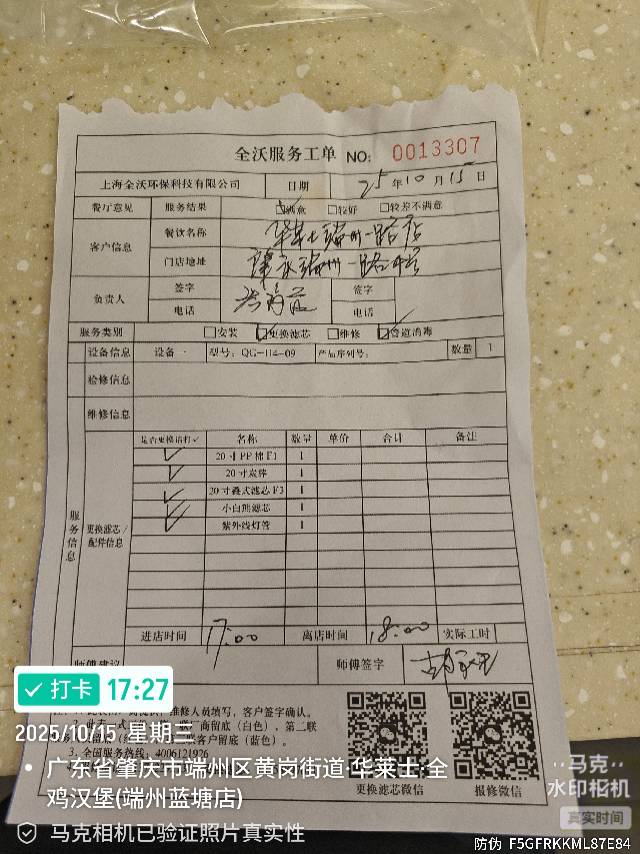 全沃服务工单 NO: 0013307
上海全沃环保科技有限公司 日期 25年10月15日
餐厅意见 服务结果 ☑满意 □较好 □较差不满意
客户信息 餐饮名称 华莱士端州一路店
门店地址 肇庆端州一路
负责人 签字 签字
电话 电话
服务类别 □安装 ☑更换滤芯 □维修 ☑管道消毒
设备信息 设备 型号: QG-114-09 产品序列号: 数量 1
检修信息
维修信息
服务信息
更换滤芯/配件信息
是否更换请打✓ 名称 数量 单价 合计 备注
✓ 20寸PP棉F1 1
✓ 20寸炭棒 1
✓ 20寸叠式滤芯F3 1
✓ 小白熊滤芯 1
✓ 紫外线灯管 1
进店时间 17:00 离店时间 18:00 实际工时
师傅建议 师傅签字
维修人员填写，客户签字确认。
厂商留底（白色）、第二联
客户留底（蓝色）。
3. 全国服务热线: 4006121926
更换滤芯微信 报修微信
打卡 17:27
2025.10.15 星期三
广东省肇庆市端州区黄岗街道华莱士·全
鸡汉堡(端州蓝塘店)
马克相机已验证照片真实性
马克
水印相机
真实时间
防伪 F5GFRKKML87E84